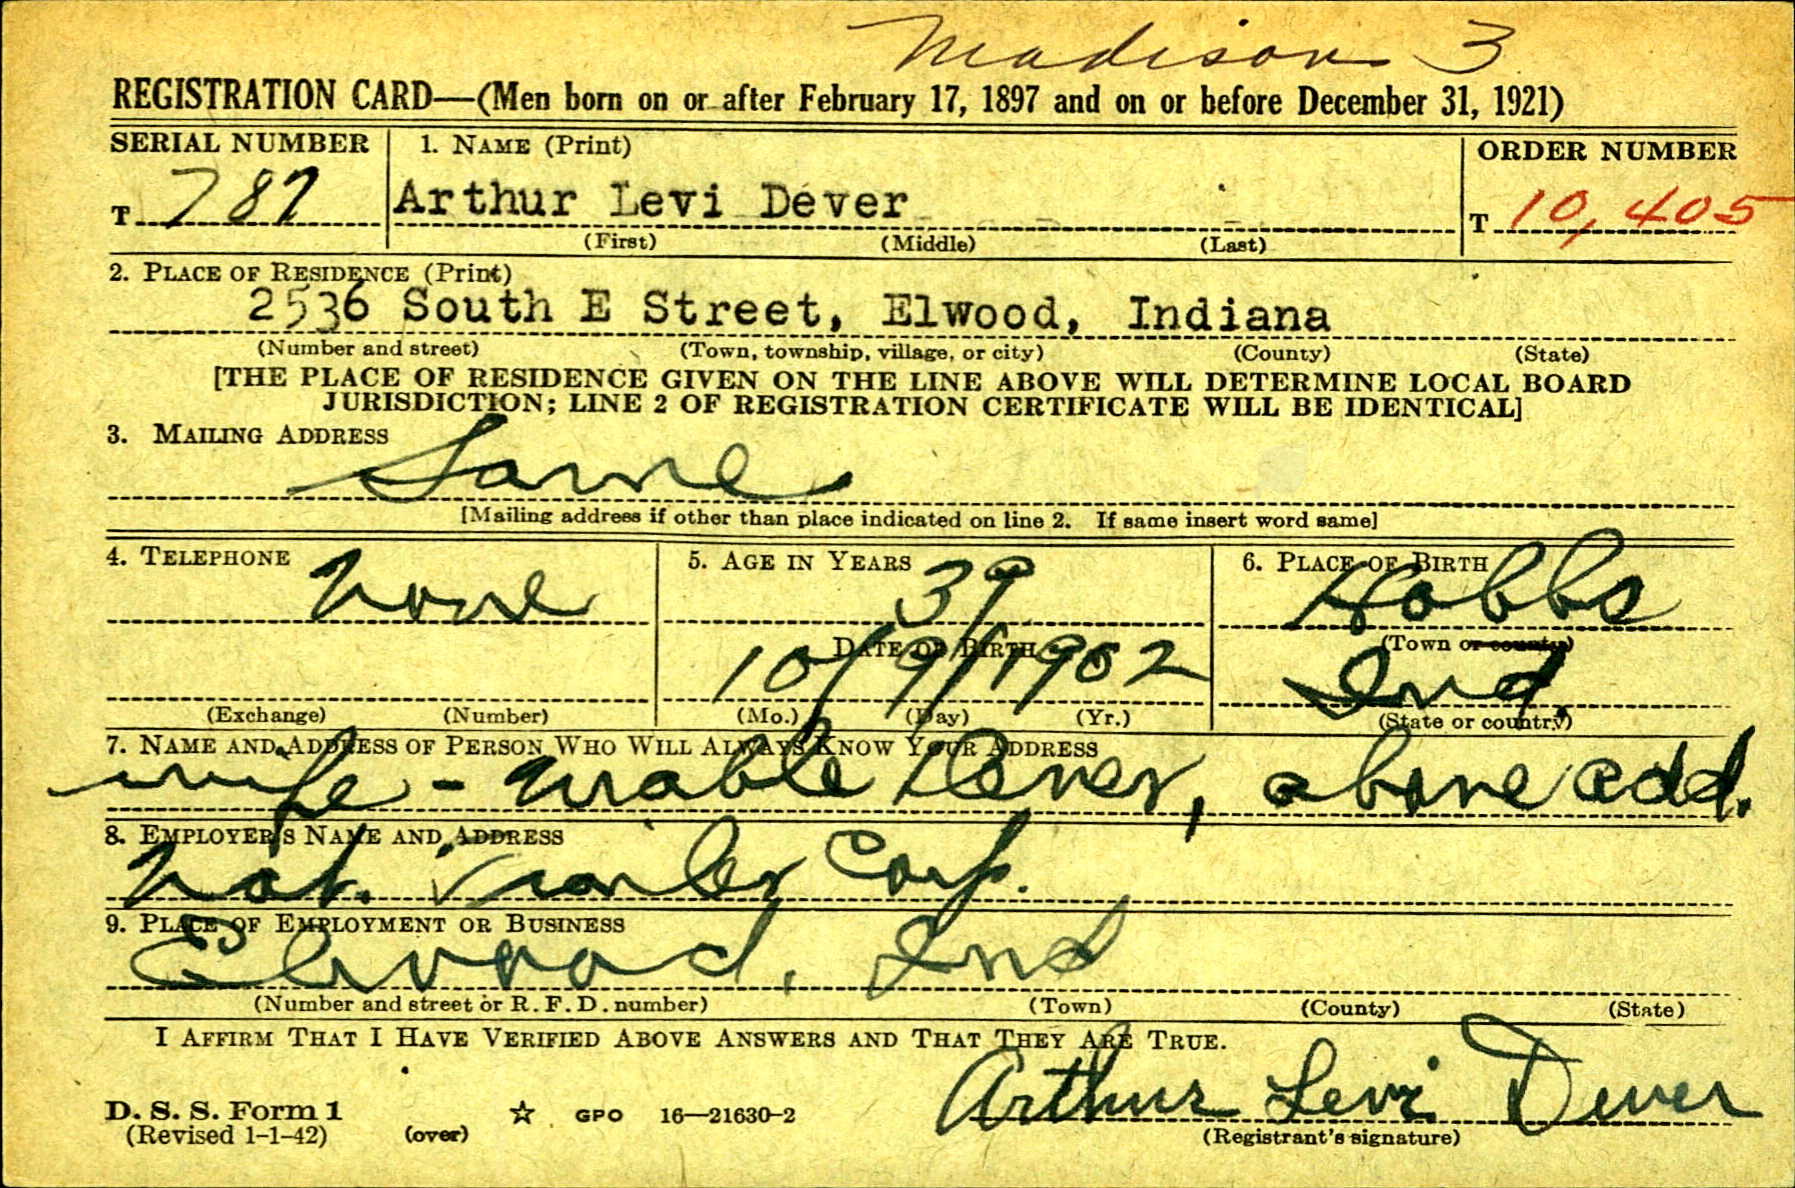 Madison 3
REGISTRATION CARD—(Men born on or after February 17, 1897 and on or before December 31, 1921)
SERIAL NUMBER
1. NAME (Print)
ORDER NUMBER
T 787
Arthur Levi Dever
T 10,405
(First) (Middle) (Last)
2. PLACE OF RESIDENCE (Print)
2536 South E Street, Elwood, Indiana
(Number and street) (Town, township, village, or city) (County) (State)
[THE PLACE OF RESIDENCE GIVEN ON THE LINE ABOVE WILL DETERMINE LOCAL BOARD
JURISDICTION; LINE 2 OF REGISTRATION CERTIFICATE WILL BE IDENTICAL]
3. MAILING ADDRESS
Same
[Mailing address if other than place indicated on line 2. If same insert word same]
4. TELEPHONE
None
(Exchange) (Number)
5. AGE IN YEARS
39
DATE OF BIRTH
10/9/1902
(Mo.) (Day) (Yr.)
6. PLACE OF BIRTH
Hobbs
(Town or county)
Ind.
(State or country)
7. NAME AND ADDRESS OF PERSON WHO WILL ALWAYS KNOW YOUR ADDRESS
wife - Mable Dever, above add.
8. EMPLOYER'S NAME AND ADDRESS
Nat. Trailer Corp.
9. PLACE OF EMPLOYMENT OR BUSINESS
Elwood, Ind
(Number and street or R. F. D. number) (Town) (County) (State)
I AFFIRM THAT I HAVE VERIFIED ABOVE ANSWERS AND THAT THEY ARE TRUE.
Arthur Levi Dever
D. S. S. Form 1
(Revised 1-1-42)
(over)
☆ GPO 16—21630-2
(Registrant's signature)